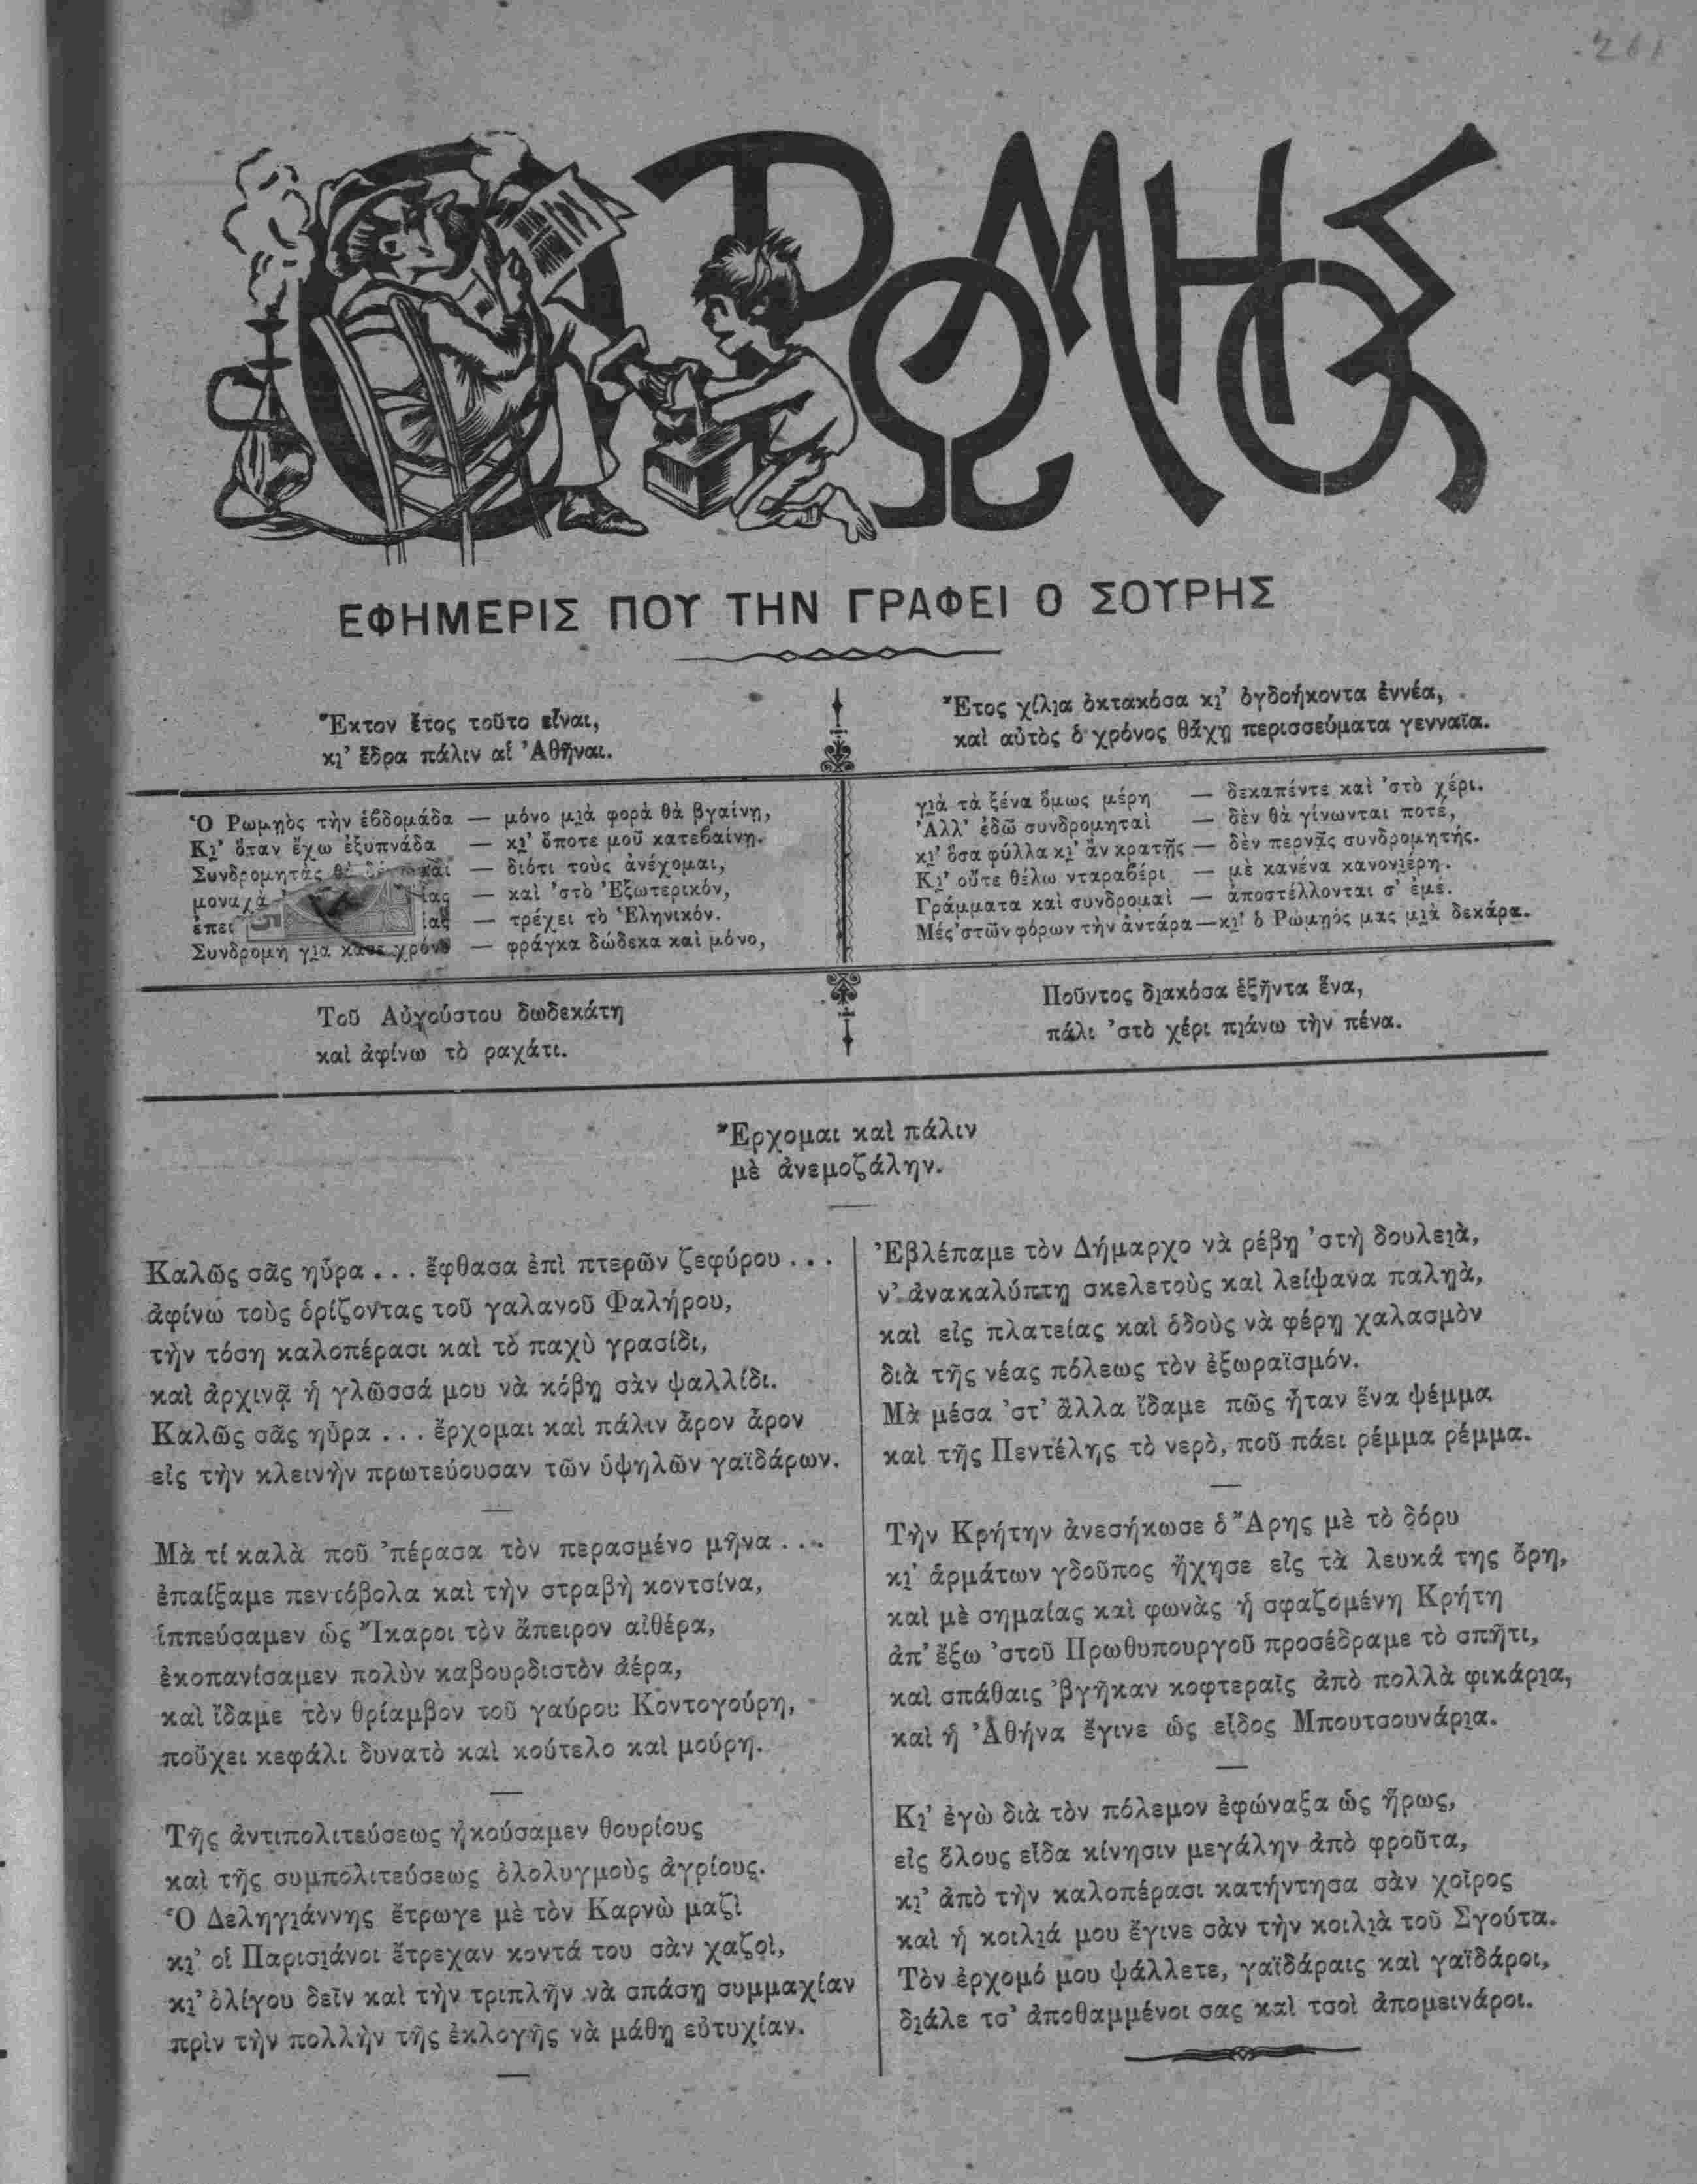 261
Ο ΡΩΜΗΟΣ
ΕΦΗΜΕΡΙΣ ΠΟΥ ΤΗΝ ΓΡΑΦΕΙ Ο ΣΟΥΡΗΣ
Ἕκτον ἔτος τοῦτο εἶναι,
κι̯’ ἕδρα πάλιν αἱ Ἀθῆναι.
Ἔτος χίλι̯α ὀκτακόσα κι̯’ ὀγδοήκοντα ἐννέα,
καὶ αὐτὸς ὁ χρόνος θἄχῃ περισσεύματα γενναῖα.
Ὁ Ρωμῃὸς τὴν ἑβδομάδα — μόνο μι̯ὰ φορὰ θὰ βγαίνῃ,
Κι̯’ ὅταν ἔχω ἐξυπνάδα — κι̯’ ὅποτε μοῦ κατεβαίνῃ.
Συνδρομητὰς θὰ — διότι τοὺς ἀνέχομαι,
μοναχὰ — καὶ ’στὸ Ἐξωτερικόν,
ἐπει — τρέχει τὸ Ἑληνικόν.
Συνδρομὴ γι̯α κάθε χρόνο — φράγκα δώδεκα καὶ μόνο,
γι̯ὰ τὰ ξένα ὅμως μέρη — δεκαπέντε καὶ ’στὸ χέρι.
Ἀλλ’ ἐδῶ συνδρομηταὶ — δὲν θὰ γίνωνται ποτέ,
κι̯’ ὅσα φύλλα κι̯’ ἂν κρατῇς — δὲν περνᾷς συνδρομητής.
Κι̯’ οὔτε θέλω νταραβέρι — μὲ κανένα κανονι̯έρη.
Γράμματα καὶ συνδρομαὶ — ἀποστέλλονται σ’ ἐμέ.
Μές ’στῶν φόρων τὴν ἀντάρα — κι̯’ ὁ Ρωμῃός μας μι̯ὰ δεκάρα.
Τοῦ Αὐγούστου δωδεκάτη
καὶ ἀφίνω τὸ ραχάτι.
Ποῦντος δι̯ακόσα ἑξῆντα ἕνα,
πάλι ’στὸ χέρι πι̯άνω τὴν πένα.
Ἔρχομαι καὶ πάλιν
μὲ ἀνεμοζάλην.
Καλῶς σᾶς ηὗρα . . . ἔφθασα ἐπὶ πτερῶν ζεφύρου . . .
ἀφίνω τοὺς ὁρίζοντας τοῦ γαλανοῦ Φαλήρου,
τὴν τόση καλοπέρασι καὶ τὸ παχὺ γρασίδι,
καὶ ἀρχινᾷ ἡ γλῶσσά μου νὰ κόβῃ σὰν ψαλλίδι.
Καλῶς σᾶς ηὗρα . . . ἔρχομαι καὶ πάλιν ἆρον ἆρον
εἰς τὴν κλεινὴν πρωτεύουσαν τῶν ὑψηλῶν γαϊδάρων.
Μὰ τί καλὰ ποῦ ’πέρασα τὸν περασμένο μῆνα . . .
ἐπαίξαμε πεντόβολα καὶ τὴν στραβὴ κοντσίνα,
ἱππεύσαμεν ὡς Ἴκαροι τὸν ἄπειρον αἰθέρα,
ἐκοπανίσαμεν πολὺν καβουρδιστὸν ἀέρα,
καὶ ἴδαμε τὸν θρίαμβον τοῦ γαύρου Κοντογούρη,
ποὔχει κεφάλι δυνατὸ καὶ κούτελο καὶ μούρη.
Τῆς ἀντιπολιτεύσεως ἠκούσαμεν θουρίους
καὶ τῆς συμπολιτεύσεως ὀλολυγμοὺς ἀγρίους.
Ὁ Δεληγι̯άννης ἔτρωγε μὲ τὸν Καρνὼ μαζὶ
κι̯’ οἱ Παρισι̯άνοι ἔτρεχαν κοντά του σὰν χαζοὶ,
κι̯’ ὀλίγου δεῖν καὶ τὴν τριπλῆν νὰ σπάσῃ συμμαχίαν
πρὶν τὴν πολλὴν τῆς ἐκλογῆς νὰ μάθῃ εὐτυχίαν.
Ἐβλέπαμε τὸν Δήμαρχο νὰ ρέβῃ ’στὴ δουλει̯ὰ,
ν’ ἀνακαλύπτῃ σκελετοὺς καὶ λείψανα παλῃὰ,
καὶ εἰς πλατείας καὶ ὁδοὺς νὰ φέρῃ χαλασμὸν
διὰ τῆς νέας πόλεως τὸν ἐξωραϊσμόν.
Μὰ μέσα ’στ’ ἄλλα ἴδαμε πῶς ἦταν ἕνα ψέμμα
καὶ τῆς Πεντέλης τὸ νερὸ, ποῦ πάει ρέμμα ρέμμα.
Τὴν Κρήτην ἀνεσήκωσε ὁ Ἄρης μὲ τὸ δόρυ
κι̯’ ἁρμάτων γδοῦπος ἤχησε εἰς τὰ λευκά της ὄρη,
καὶ μὲ σημαίας καὶ φωνὰς ἡ σφαζομένη Κρήτη
ἀπ’ ἔξω ’στοῦ Πρωθυπουργοῦ προσέδραμε τὸ σπῆτι,
καὶ σπάθαις ’βγῆκαν κοφτεραῖς ἀπὸ πολλὰ φικάρι̯α,
καὶ ἡ Ἀθήνα ἔγινε ὡς εἶδος Μπουτσουνάρι̯α.
Κι̯’ ἐγὼ διὰ τὸν πόλεμον ἐφώναξα ὡς ἥρως,
εἰς ὅλους εἶδα κίνησιν μεγάλην ἀπὸ φροῦτα,
κι̯’ ἀπὸ τὴν καλοπέρασι κατήντησα σὰν χοῖρος
καὶ ἡ κοιλι̯ά μου ἔγινε σὰν τὴν κοιλι̯ὰ τοῦ Σγούτα.
Τὸν ἐρχομό μου ψάλλετε, γαϊδάραις καὶ γαϊδάροι,
δι̯άλε τσ’ ἀποθαμμένοι σας καὶ τσοὶ ἀπομεινάροι.